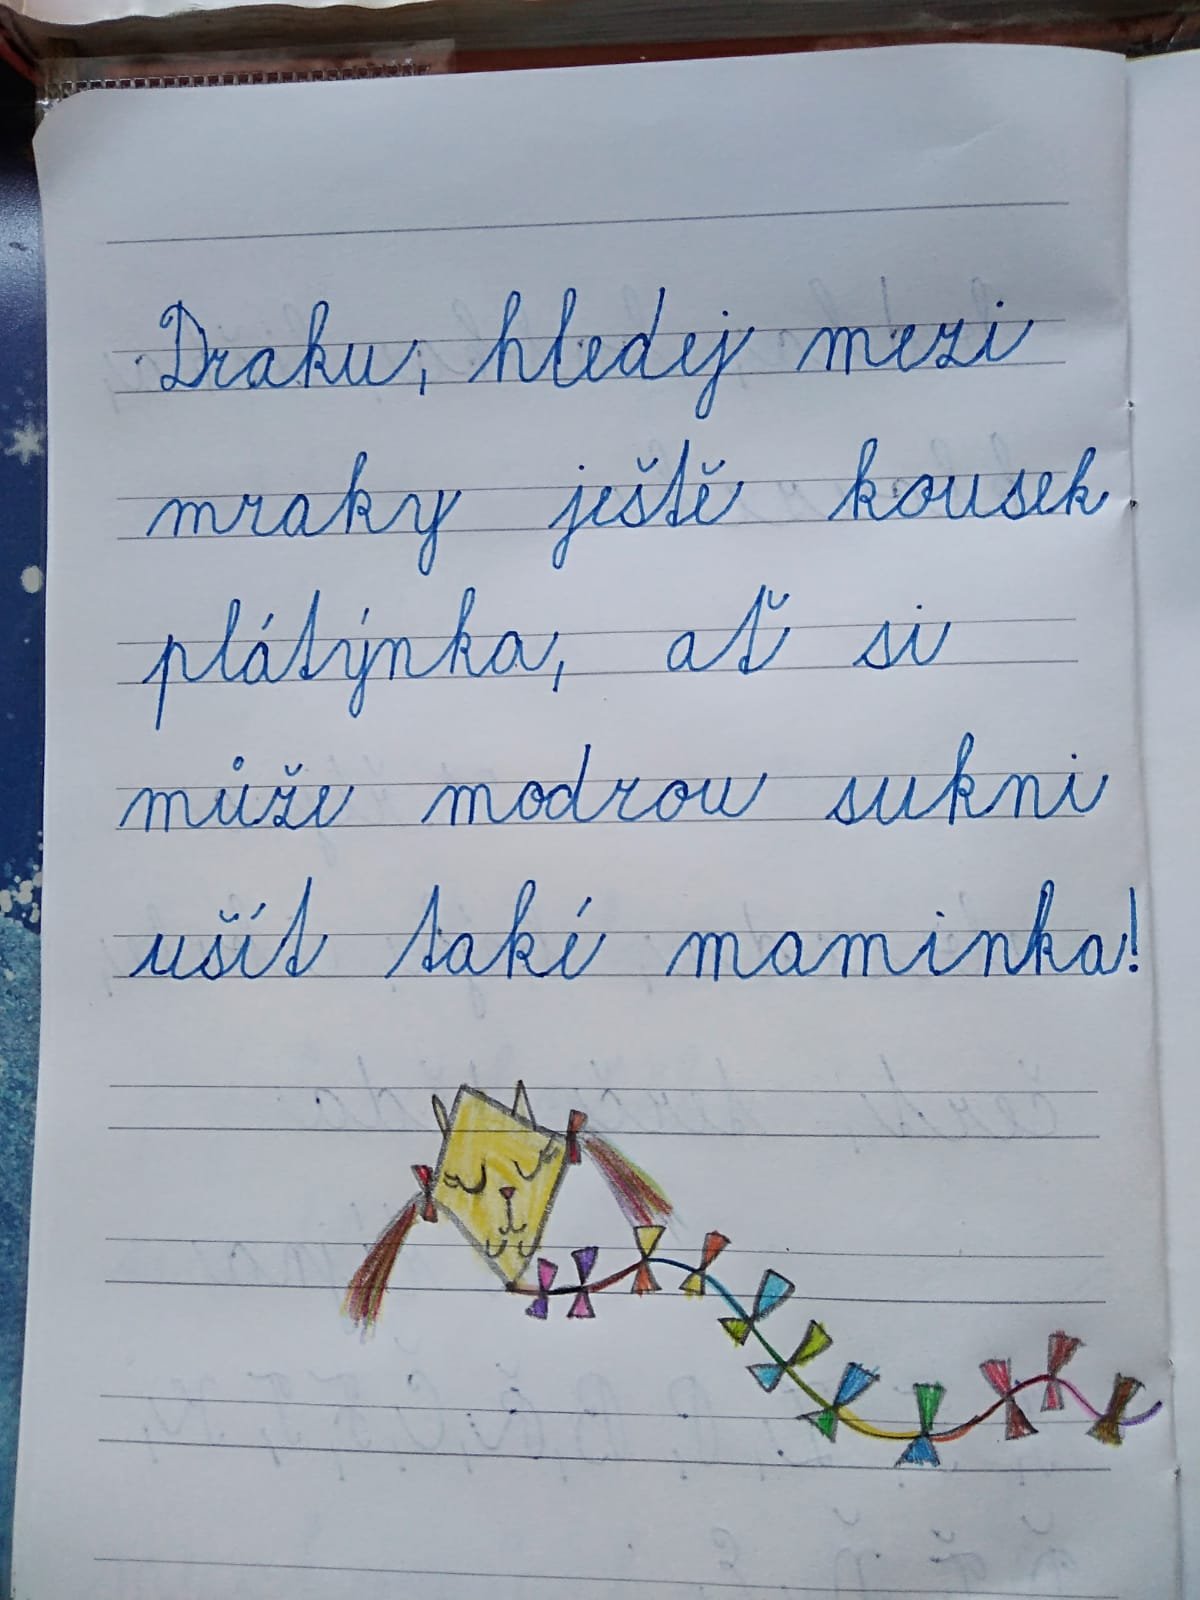 Draku, hledej mezi
mraky ještě kousek
plátýnka, ať si
může modrou sukni
ušít také maminka!